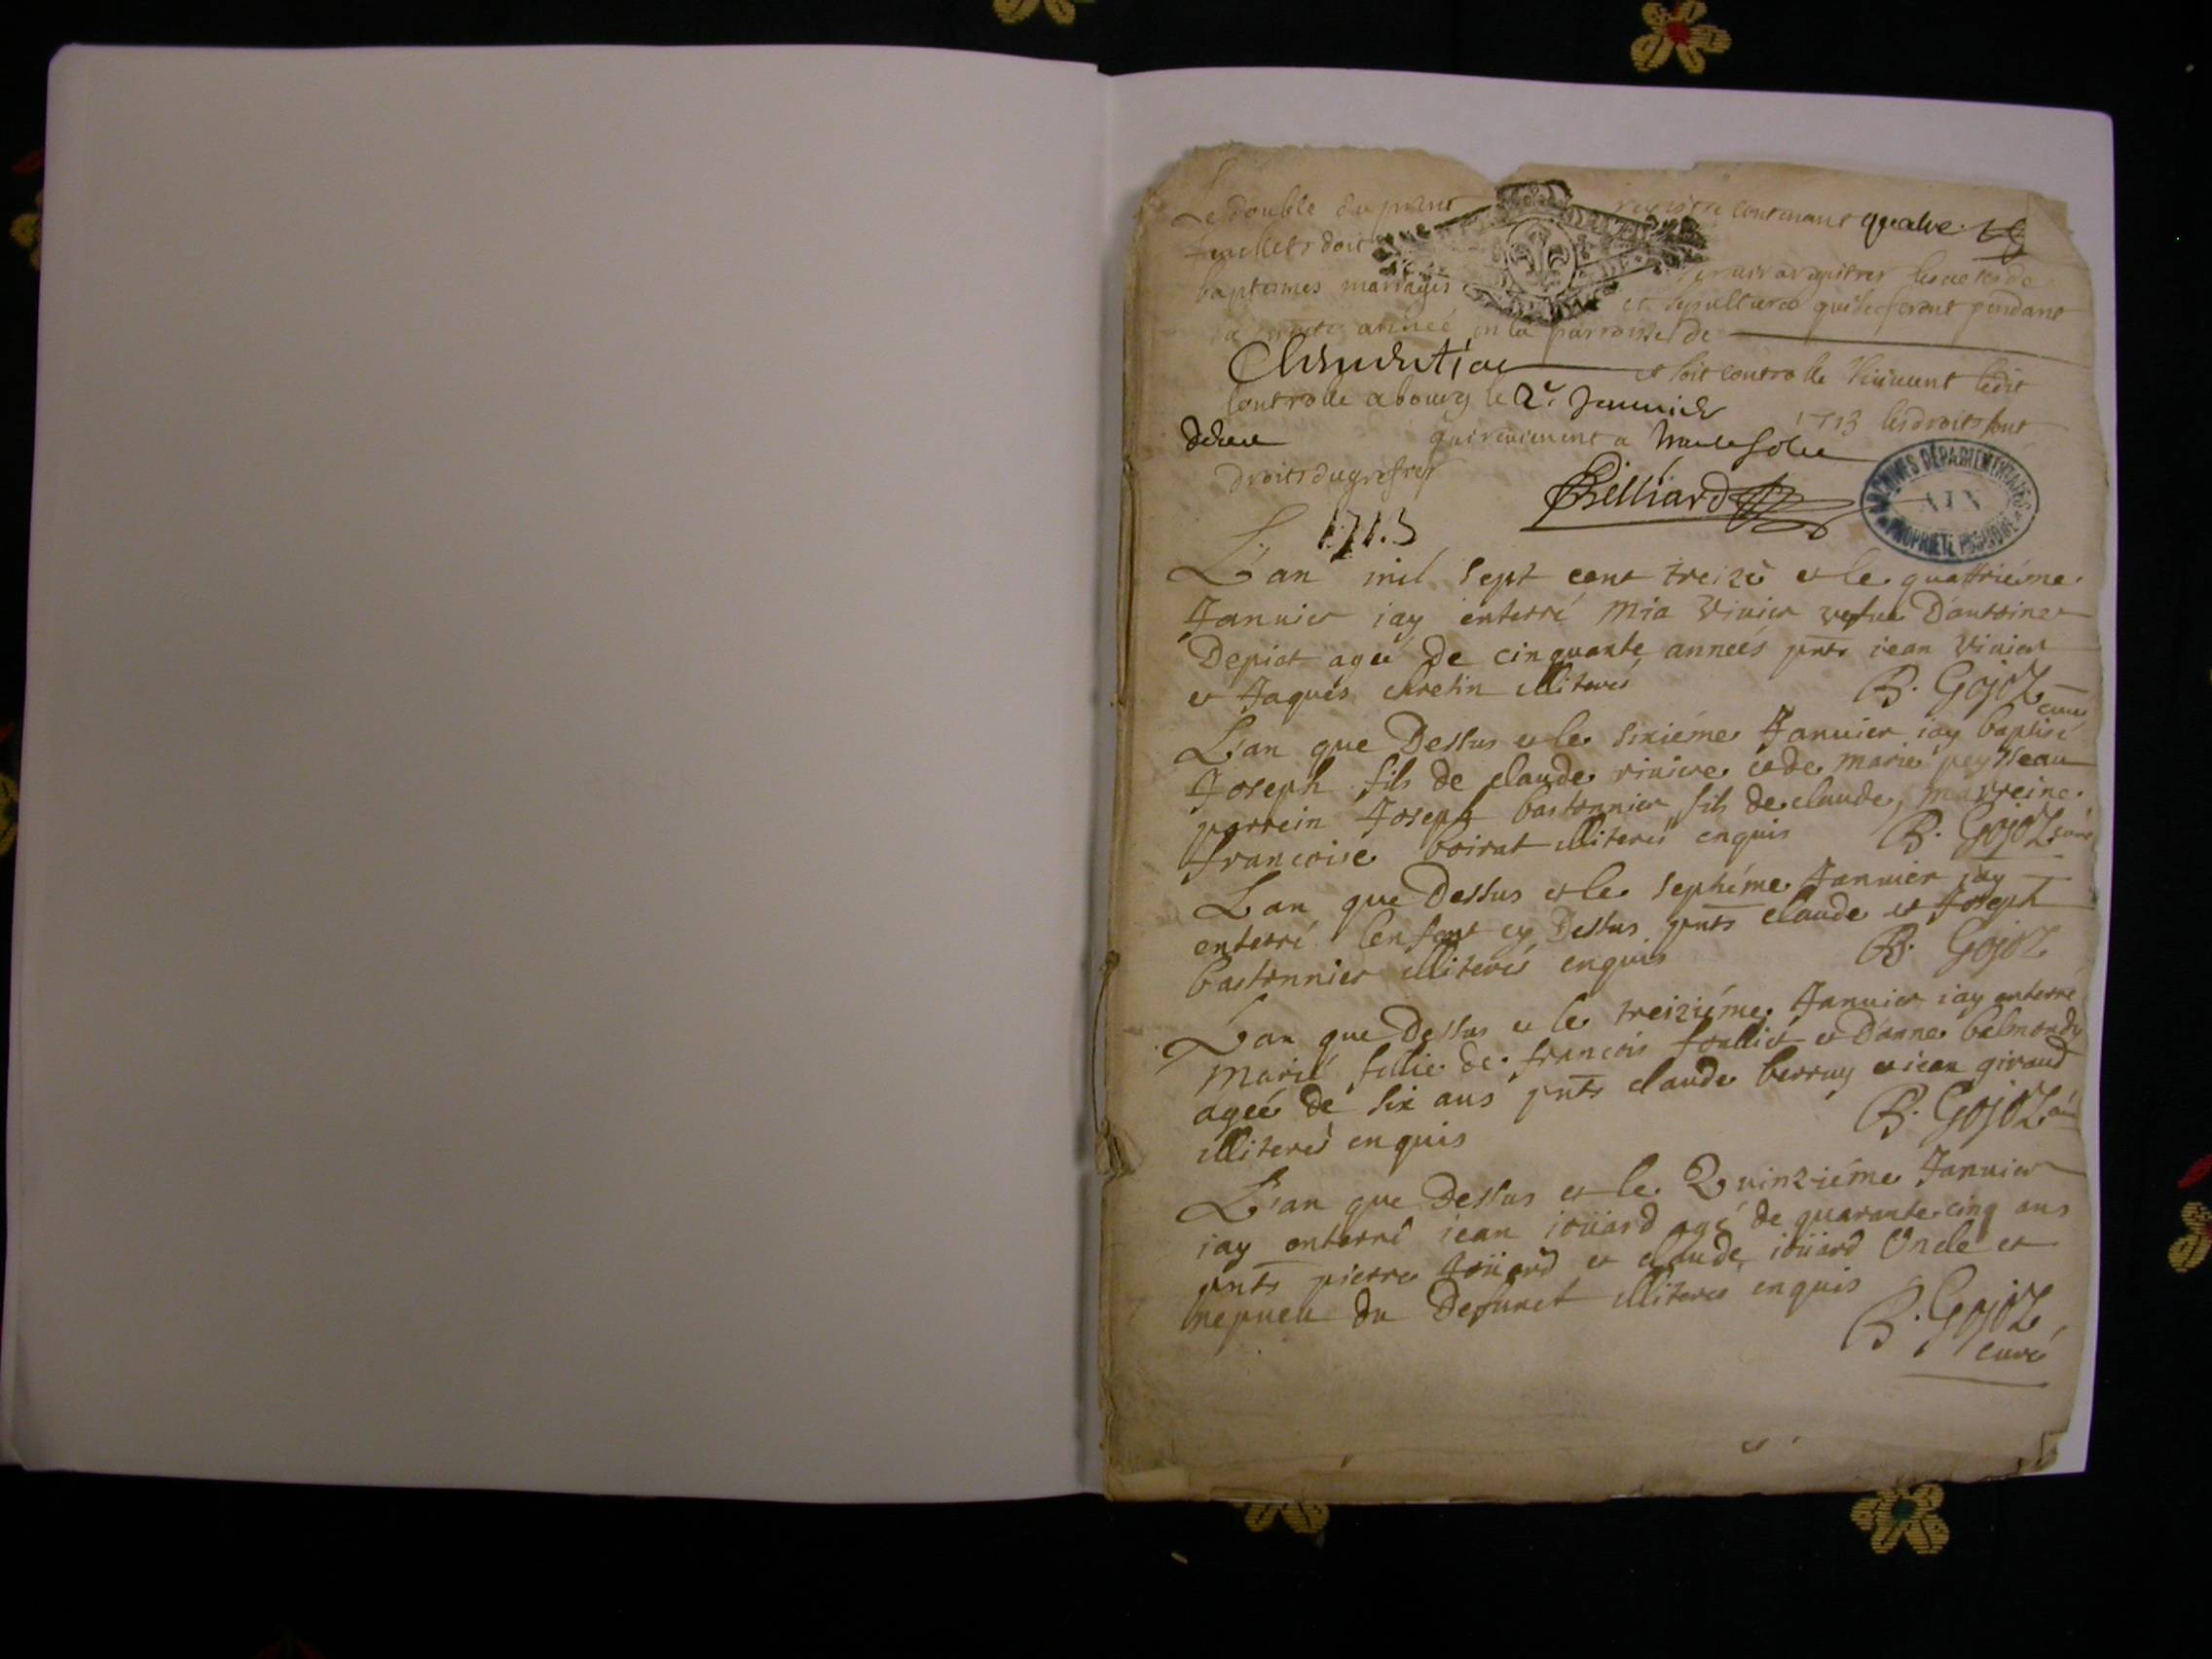 Le double du pnt registre contenant quatre
feuillets doit servir a registrer les actes de
baptesmes mariages et sepultures qui se feront pendant
la pnte année en la parroisse de
et soit controlle suivant ledit
Controlle a bourg le 2e Januier 1713 les droits sont
qui reviennent a
droits du greffe
Billiard
ARCHIVES DÉPARTEMENTALES
AIN
PROPRIÉTÉ PUBLIQUE
1713
L'an mil sept cent treize et le quattriéme
Januier iay enterré Mia Viuier vefue D'antoine
Depiat agée De cinquante années pnts iean Viuier
et Jaques chretin illiterés
B. Gojoz curé
L'an que Dessus et le sixiéme Januier iay baptisé
Joseph fils de claude riuiere et de marie peysseau
parrein Joseph bastonnier fils de claude, marreine
francoise boirat illiterés enquis B. Gojoz curé
L'an que Dessus et le septiéme Januier iay
enterré l'enfant cy Dessus pnts claude et Joseph
bastonnier illiterés enquis B. Gojoz
L'an que Dessus et le treiziéme Januier iay enterré
Marie fillie de francois foilliet et D'anne
agée de six ans pnts claude berruy et iean giraud
illiterés enquis B. Gojoz curé
L'an que Dessus et le Quinziéme Januier
iay enterré iean ioüard agé de quarante cinq ans
pnts pierre Joüard et claude ioüard Oncle et
nepueu du Defunct illiterés enquis
B. Gojoz
curé